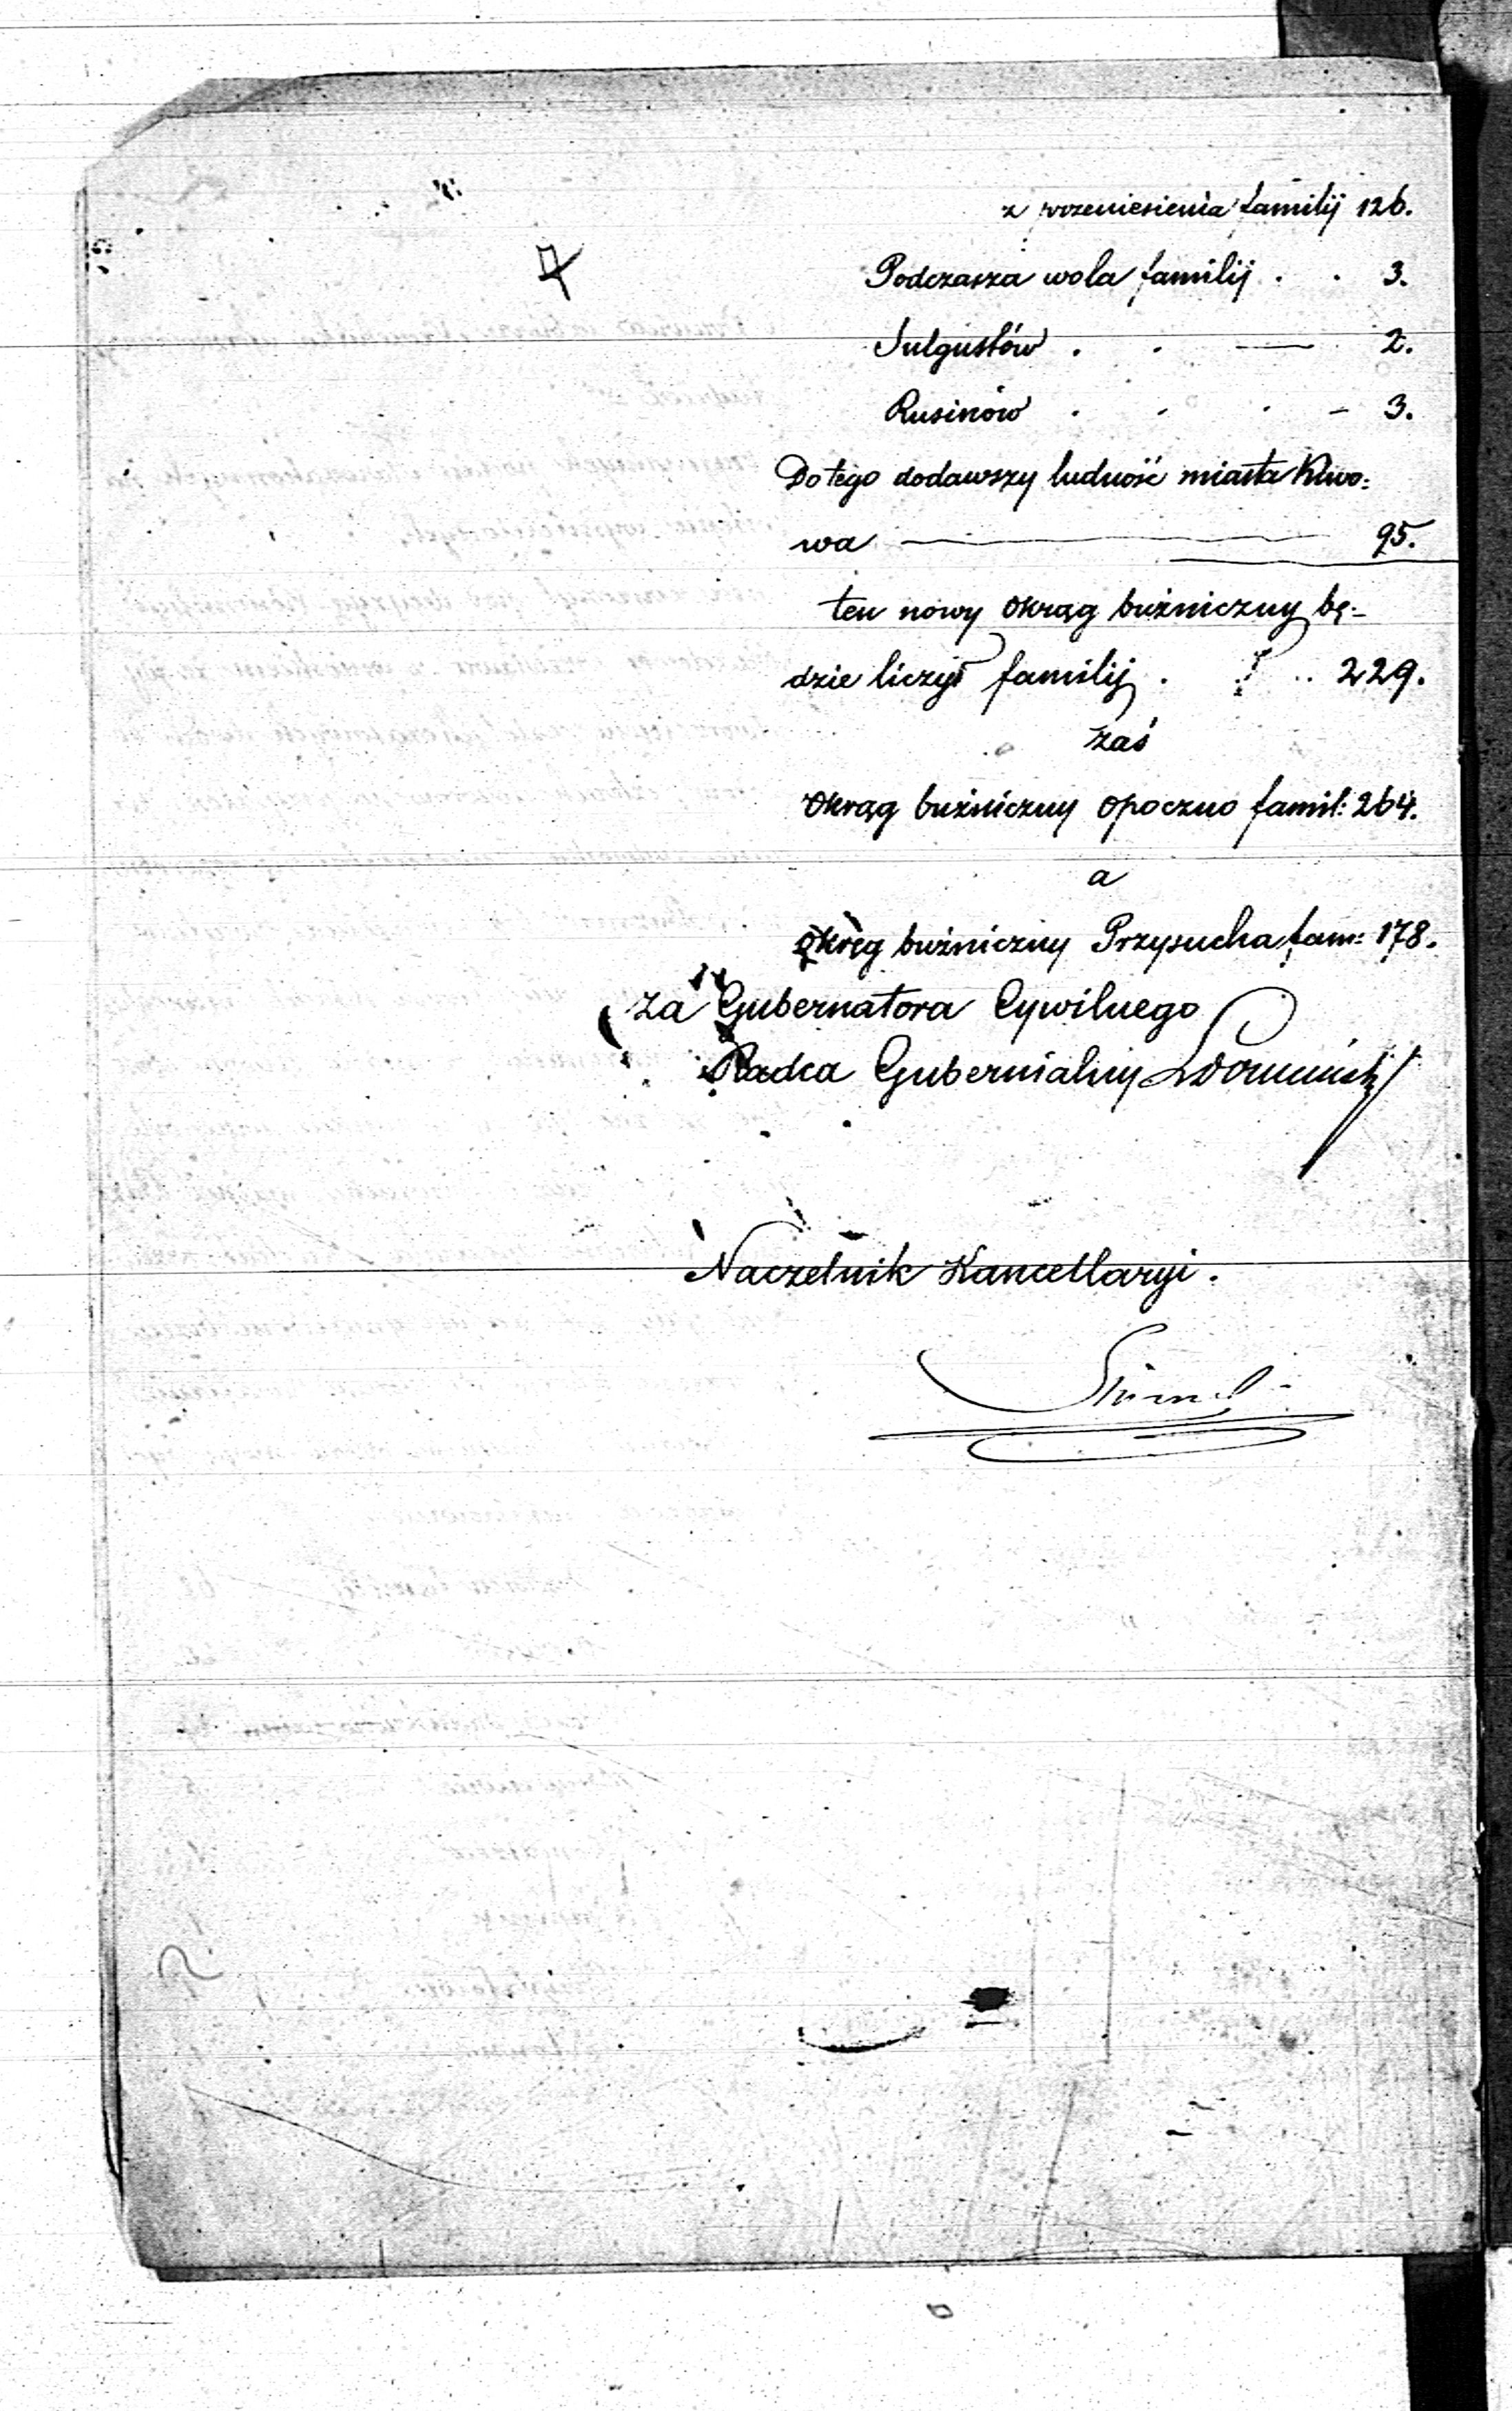 z przeniesienia familij 126.
Podczasza wola familij . . 3.
Sulgustów . . — 2.
Rusinów . . . - 3.
Do tego dodawszy ludność miasta Klwo:
wa — 95.
ten nowy okrąg buźniczny bę-
dzie liczył familij . . .. 229.
zaś
okrąg buźniczny Opoczno famil: 264.
a
okręg buźniczny Przysucha fam: 178.
za Gubernatora Cywilnego
Radca Gubernialny
Naczelnik Kancellaryi.